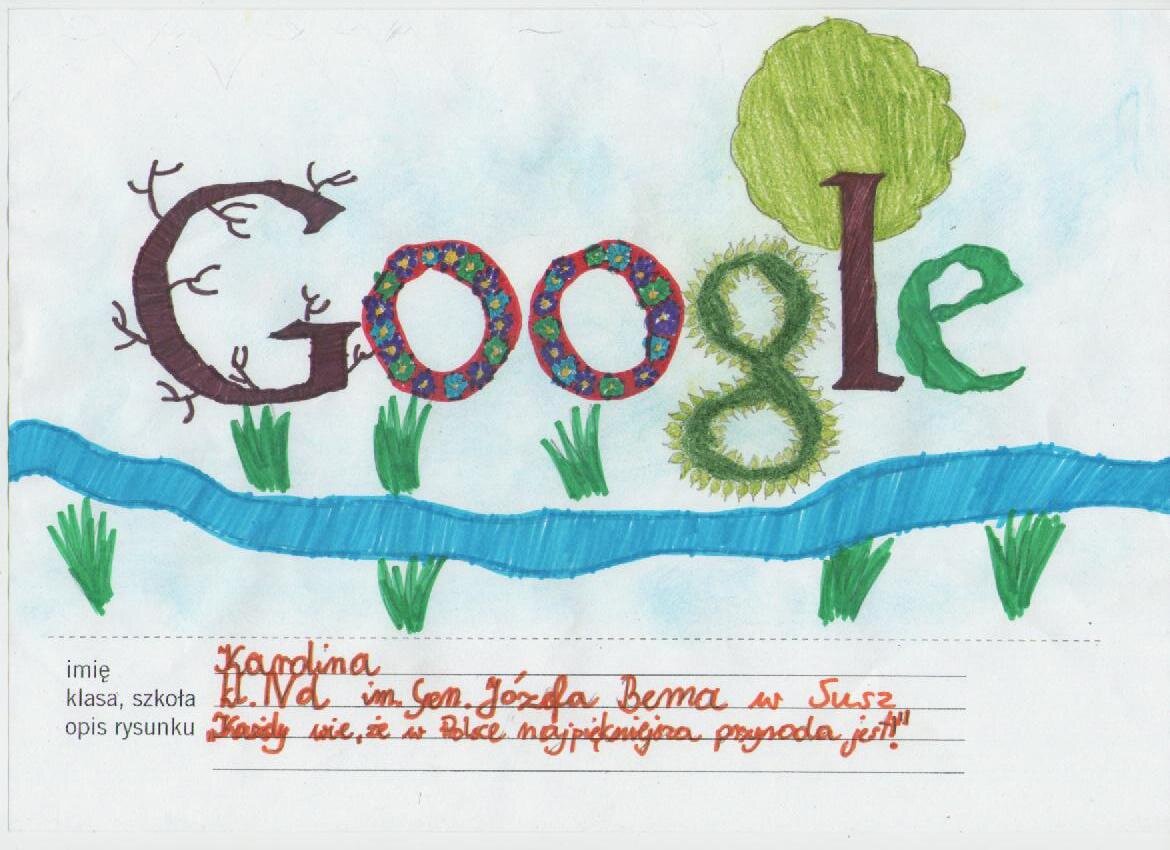 Google
imię Karolina
klasa, szkoła kl. IVd im. Gen. Józefa Bema w Susz
opis rysunku "Każdy wie, że w Polsce najpiękniejsza przyroda jest!"